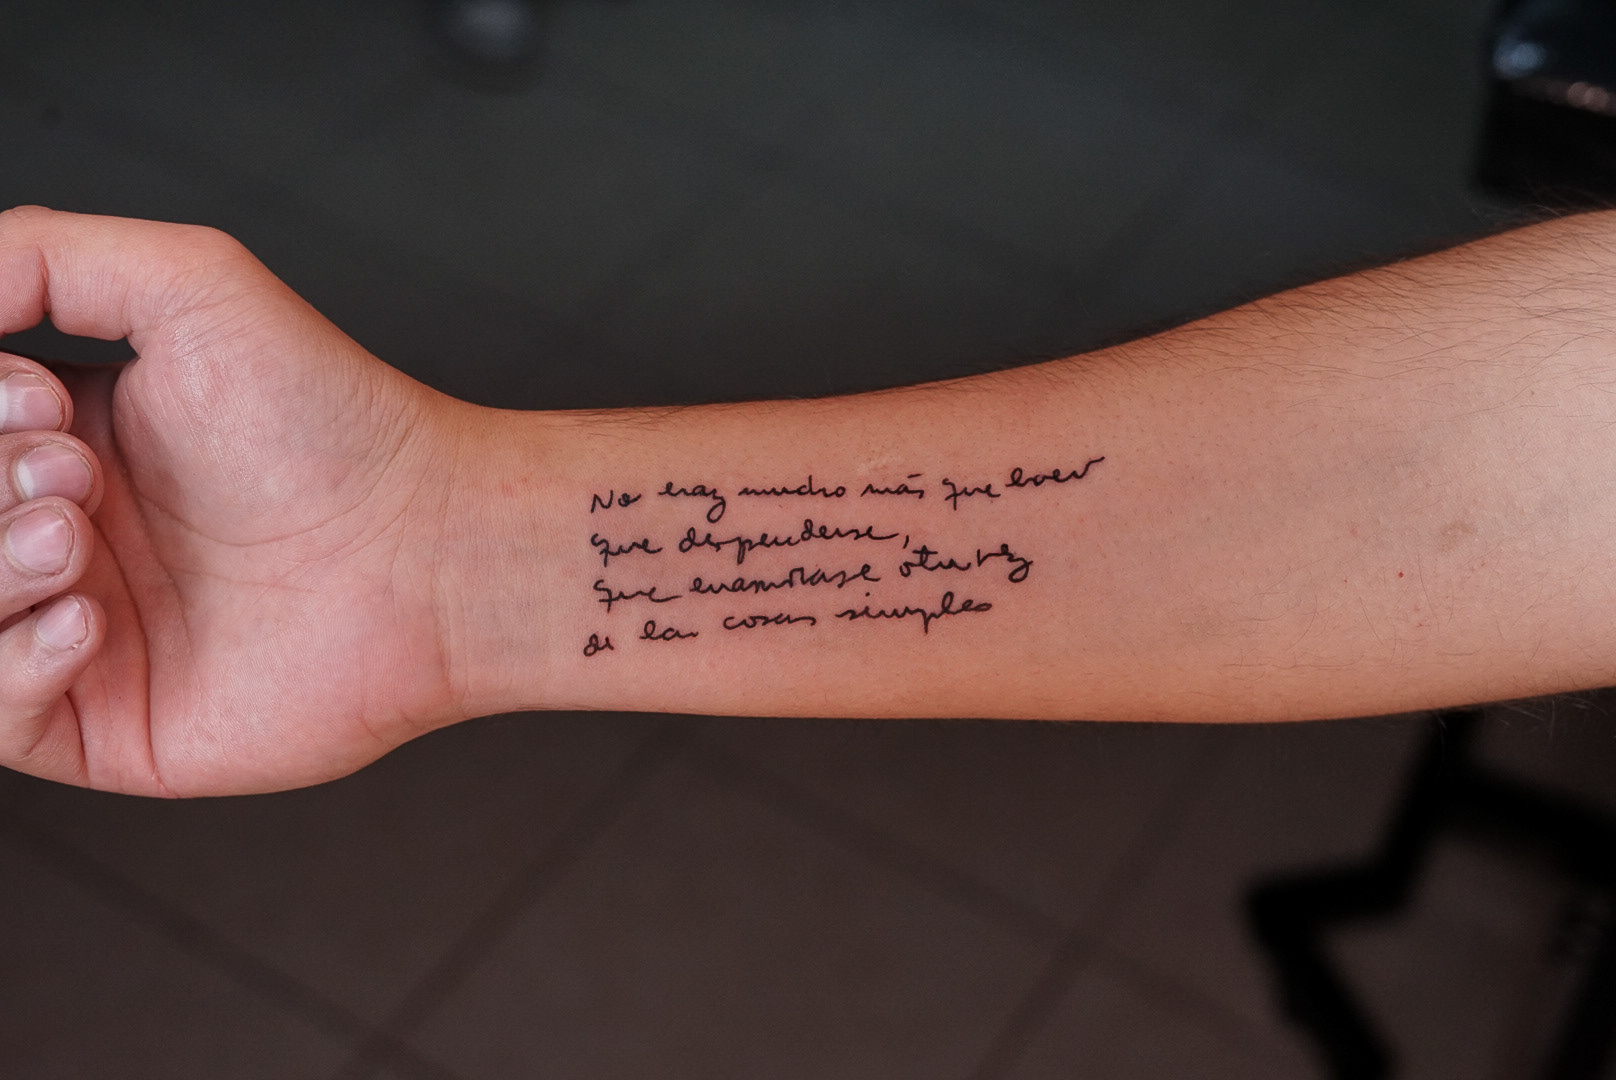 No hay mucho más que hacer
que desprenderse,
que enamorarse otra vez
de las cosas simples